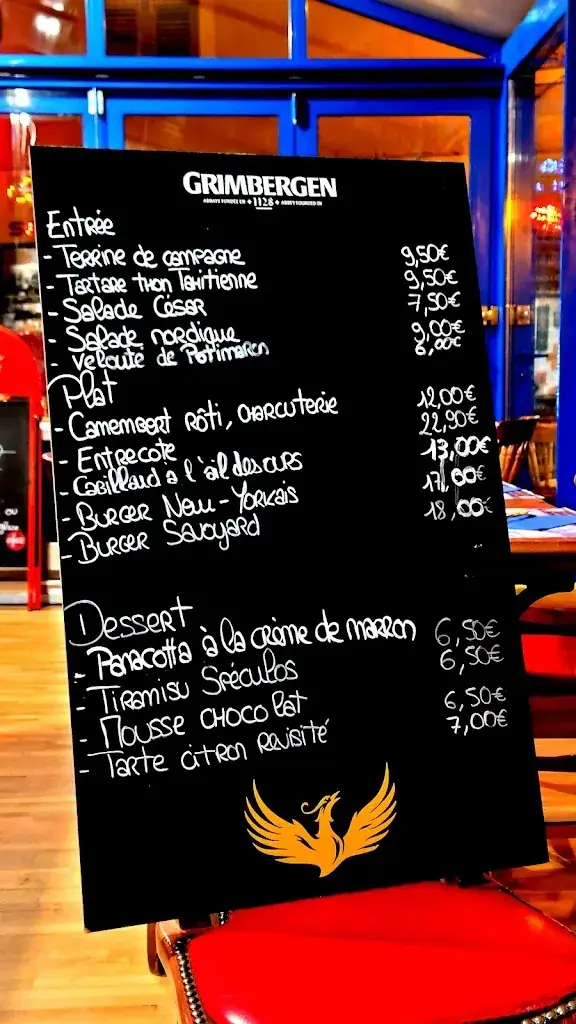 GRIMBERGEN
ABBAYE FONDÉE EN 1128 ABBEY FOUNDED IN
Entrée
- Terrine de campagne 9,50€
- Tartare thon Tahitienne 9,50€
- Salade César 7,50€
- Salade nordique 9,00€
- Velouté de Potimaron 8,00€
Plat
- Camembert rôti, charcuterie 12,00€
- Entrecote 22,90€
- Cabillaud à l'ail des ours 13,00€
- Burger New-Yorkais 17,00€
- Burger Savoyard 18,00€
Dessert
- Panacotta à la crème de marron 6,50€
- Tiramisu Spéculos 6,50€
- Mousse chocolat 6,50€
- Tarte citron revisité 7,00€